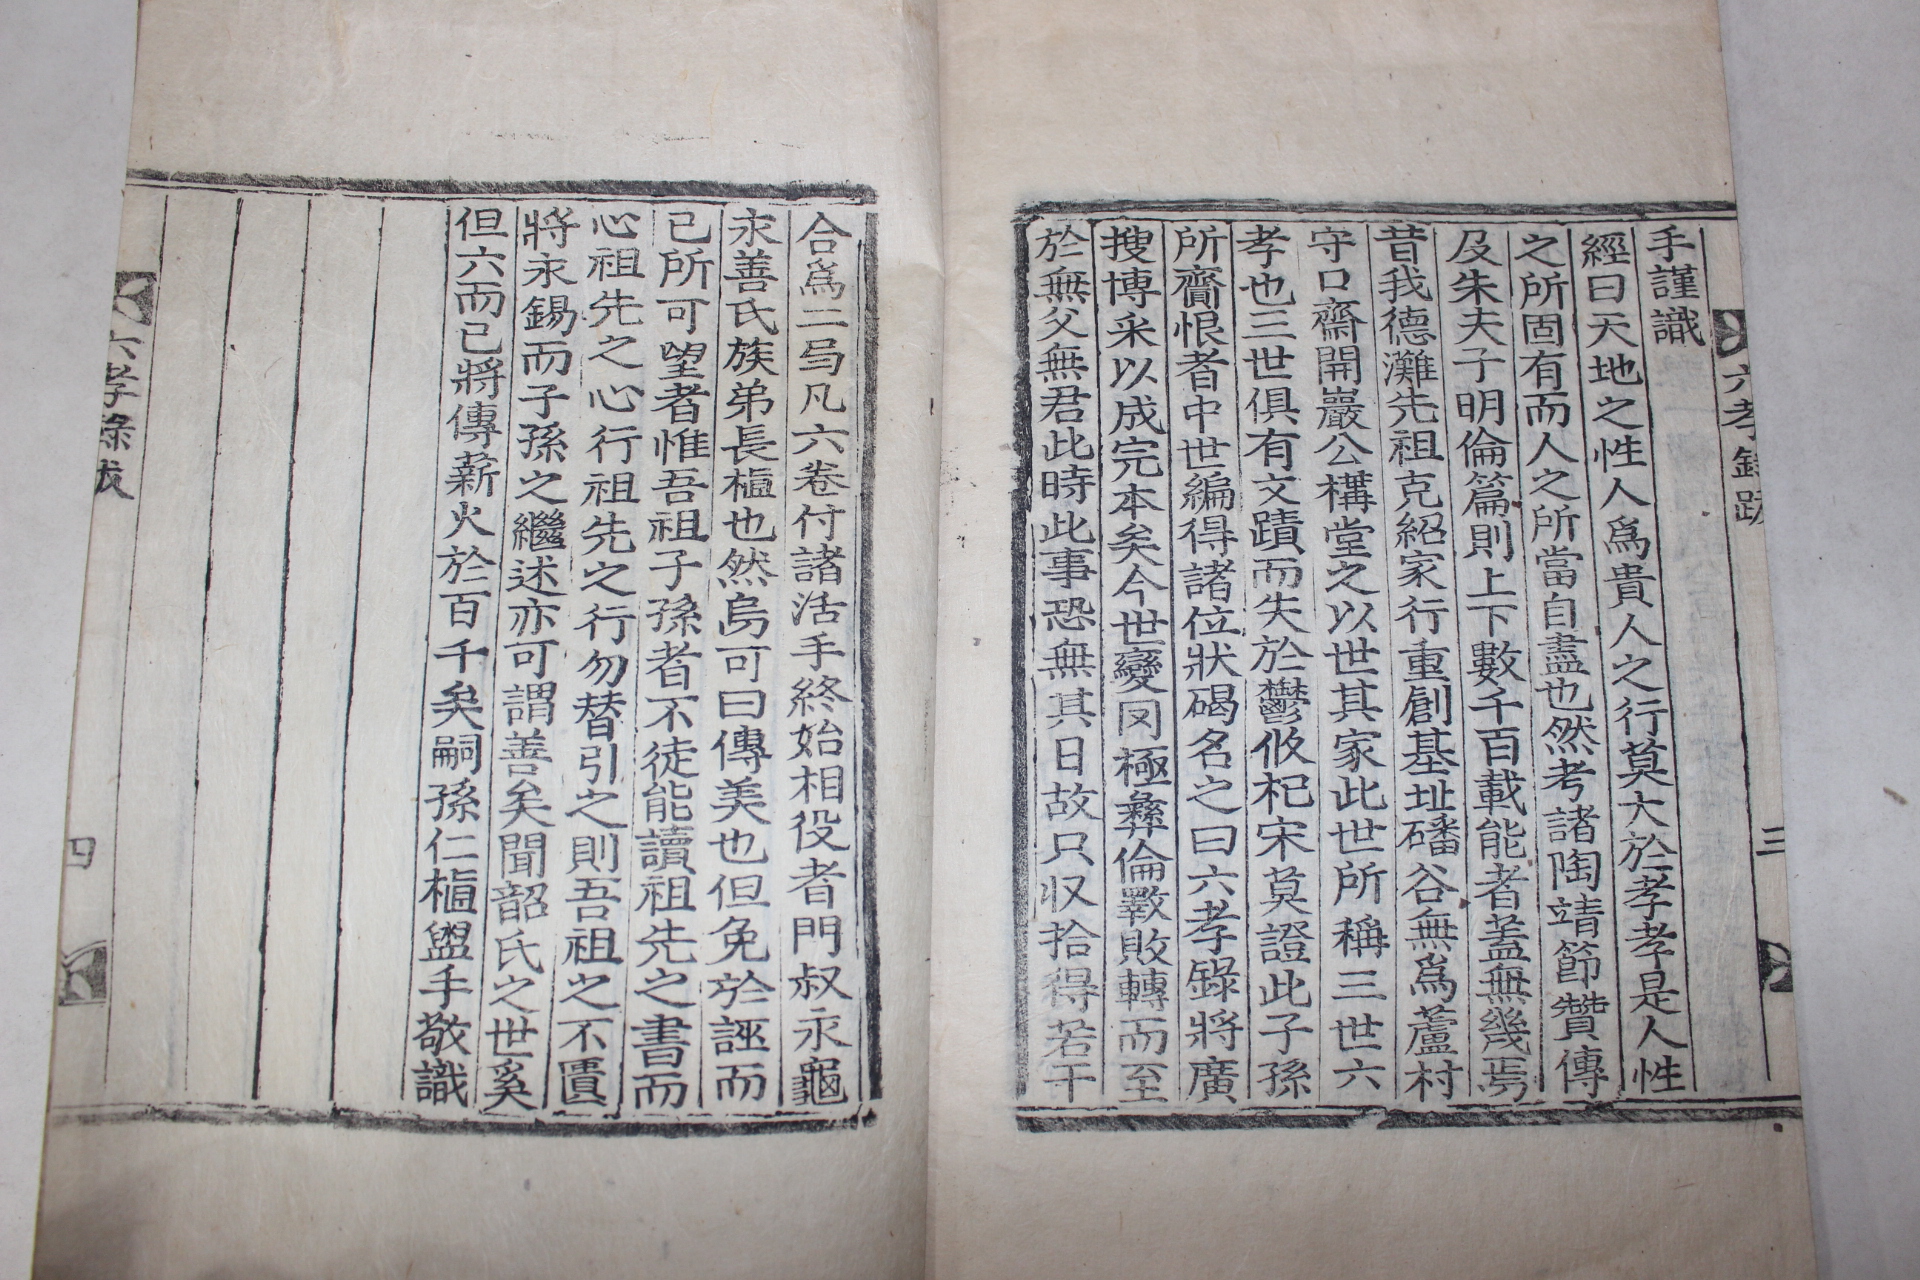 六孝錄跋
三
手謹識
經曰天地之性人爲貴人之行莫大於孝孝是人性
之所固有而人之所當自盡也然考諸陶靖節贊傳
及朱夫子明倫篇則上下數千百載能者蓋無幾焉
昔我德灘先祖克紹家行重創基址磻谷無爲蘆村
守口齋開巖公構堂之以世其家此世所稱三世六
孝也三世俱有文蹟而失於鬱攸杞宋莫證此子孫
所齎恨者中世編得諸位狀碣名之曰六孝錄將廣
搜博采以成完本矣今世變罔極彝倫斁敗轉而至
於無父無君此時此事恐無其日故只収拾得若干
合爲二局凡六卷付諸活手終始相役者門叔永龜
永善氏族弟長樞也然烏可曰傳美也但免於誣而
已所可望者惟吾祖子孫者不徒能讀祖先之書而
心祖先之心行祖先之行勿替引之則吾祖之不匱
將永錫而子孫之繼述亦可謂善矣聞韶氏之世奚
但六而已將傳薪火於百千矣嗣孫仁樞盥手敬識
六孝錄跋
四